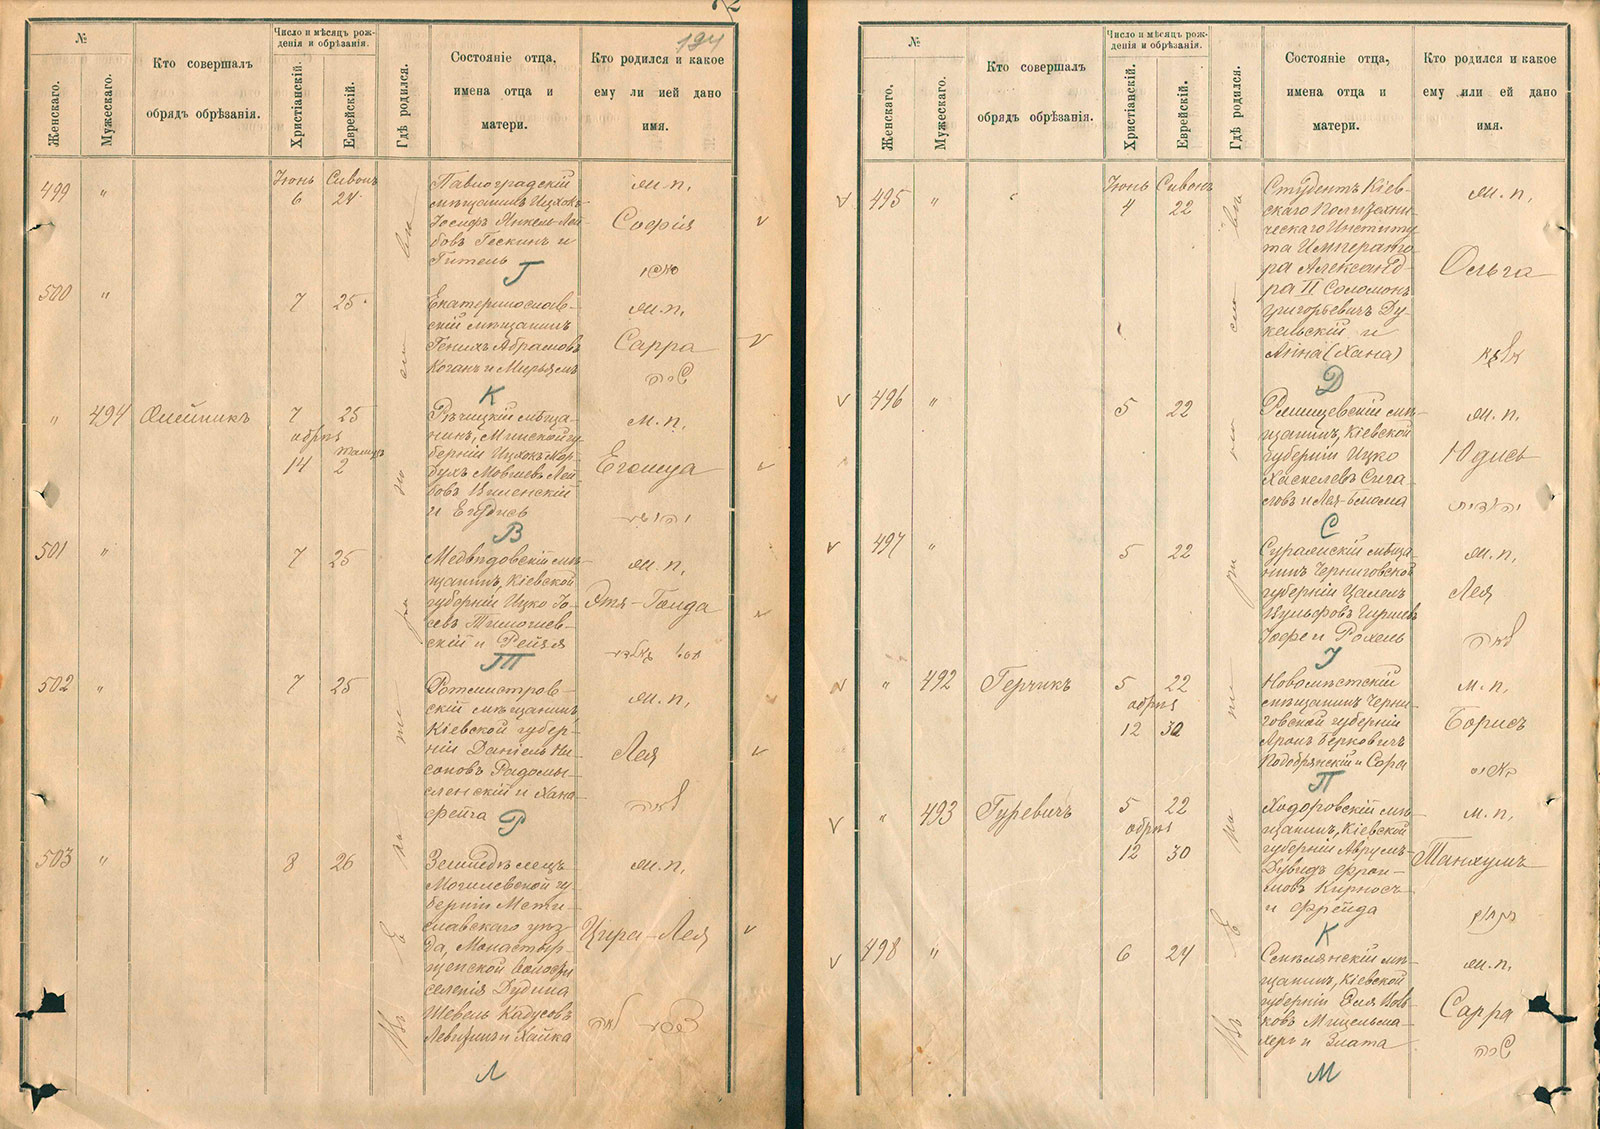 194
№
Женскаго.
Мужескаго.
Кто совершалъ
обрядъ обрѣзанія.
Число и мѣсяцъ рож-
денія и обрѣзанія.
Христіанскій.
Еврейскій.
Гдѣ родился.
Состояніе отца,
имена отца и
матери.
Кто родился и какое
ему ли ией дано
имя.
499 "
Іюнь Сивонъ
6 24
Павлоградскій
мѣщанинъ Ицхокъ-
Іосифъ Янкель-Лей-
бовъ Гескинъ и
Гитель
Г
м.п.
Софія
500 "
7 25
Екатеринослав-
скій мѣщанинъ
Генихъ Абрамовъ
Коганъ и Мирьямъ
К
м.п.
Сарра
שרה
" 494 Олейникъ
7 25
обрѣз
тамузъ
14 2
Рѣчицкій мѣща-
нинъ, Минской гу-
берніи Ицхокъ-Мор-
духъ Мовшевъ-Лей-
бовъ Виленскій
и Егудисъ
В
м.п.
Егошуа
יהושע
501 "
7 25
Медвѣдовскій мѣ-
щанинъ, Кіевской
губерніи Ицко Іо-
севъ Тимошев-
скій и Рейзя
Т
м.п.
Этя-Голда
502 "
7 25
Ротмистров-
скій мѣщанинъ,
Кіевской губер-
ніи Даніель Ни-
соновъ Радомы-
сленскій и Хана-
фейга
Р
м.п.
Лея
לאה
503 "
8 26
Земледѣлецъ
Могилевской гу-
берніи Мсти-
славскаго уѣз-
да, Монастыр-
щенской волости
селенія Дудина
Шевель Кадусовъ
Левитинъ и Хайка
Л
м.п.
Цира-Лея
לאה
Въ Екатеринославѣ
№
Женскаго.
Мужескаго.
Кто совершалъ
обрядъ обрѣзанія.
Число и мѣсяцъ рож-
денія и обрѣзанія.
Христіанскій.
Еврейскій.
Гдѣ родился.
Состояніе отца,
имена отца и
матери.
Кто родился и какое
ему или ей дано
имя.
495 "
Іюнь Сивонъ
4 22
Студентъ Кіев-
скаго Политехни-
ческаго Институ-
та Императо-
ра Александ-
ра II Соломонъ
Григорьевичъ Ду-
кельскій и
Анна (Хана)
Д
м.п.
Ольга
496 "
5 22
мѣ-
щанинъ, Кіевской
губерніи Ицко
Хаскелевъ Сига-
ловъ и Лея-Блюма
С
м.п.
Юдись
יהודית
497 "
5 22
Суражскій мѣща-
нинъ Черниговской
губерніи
Вульфовъ-Гиршевъ
Іофе и Рохель
І
м.п.
Лея
לאה
" 492 Герчикъ
5 22
обрѣз
12 30
Новомѣстскій
мѣщанинъ Черни-
говской губерніи
Аронъ Берковичъ
Подобрянскій и Сора
П
м.п.
Борисъ
" 493 Гуревичъ
5 22
обрѣз
12 30
Ходоровскій мѣ-
щанинъ, Кіевской
губерніи Аврумъ-
Дувидъ Фрои-
мовъ Кирносъ
и Фрейда
К
м.п.
Танхумъ
תנחום
498 "
6 24
Смѣлянскій мѣ-
щанинъ, Кіевской
губерніи Еля Вол-
ковъ Мицельма-
херъ и Злата
М
м.п.
Сарра
שרה
Въ Екатеринославѣ